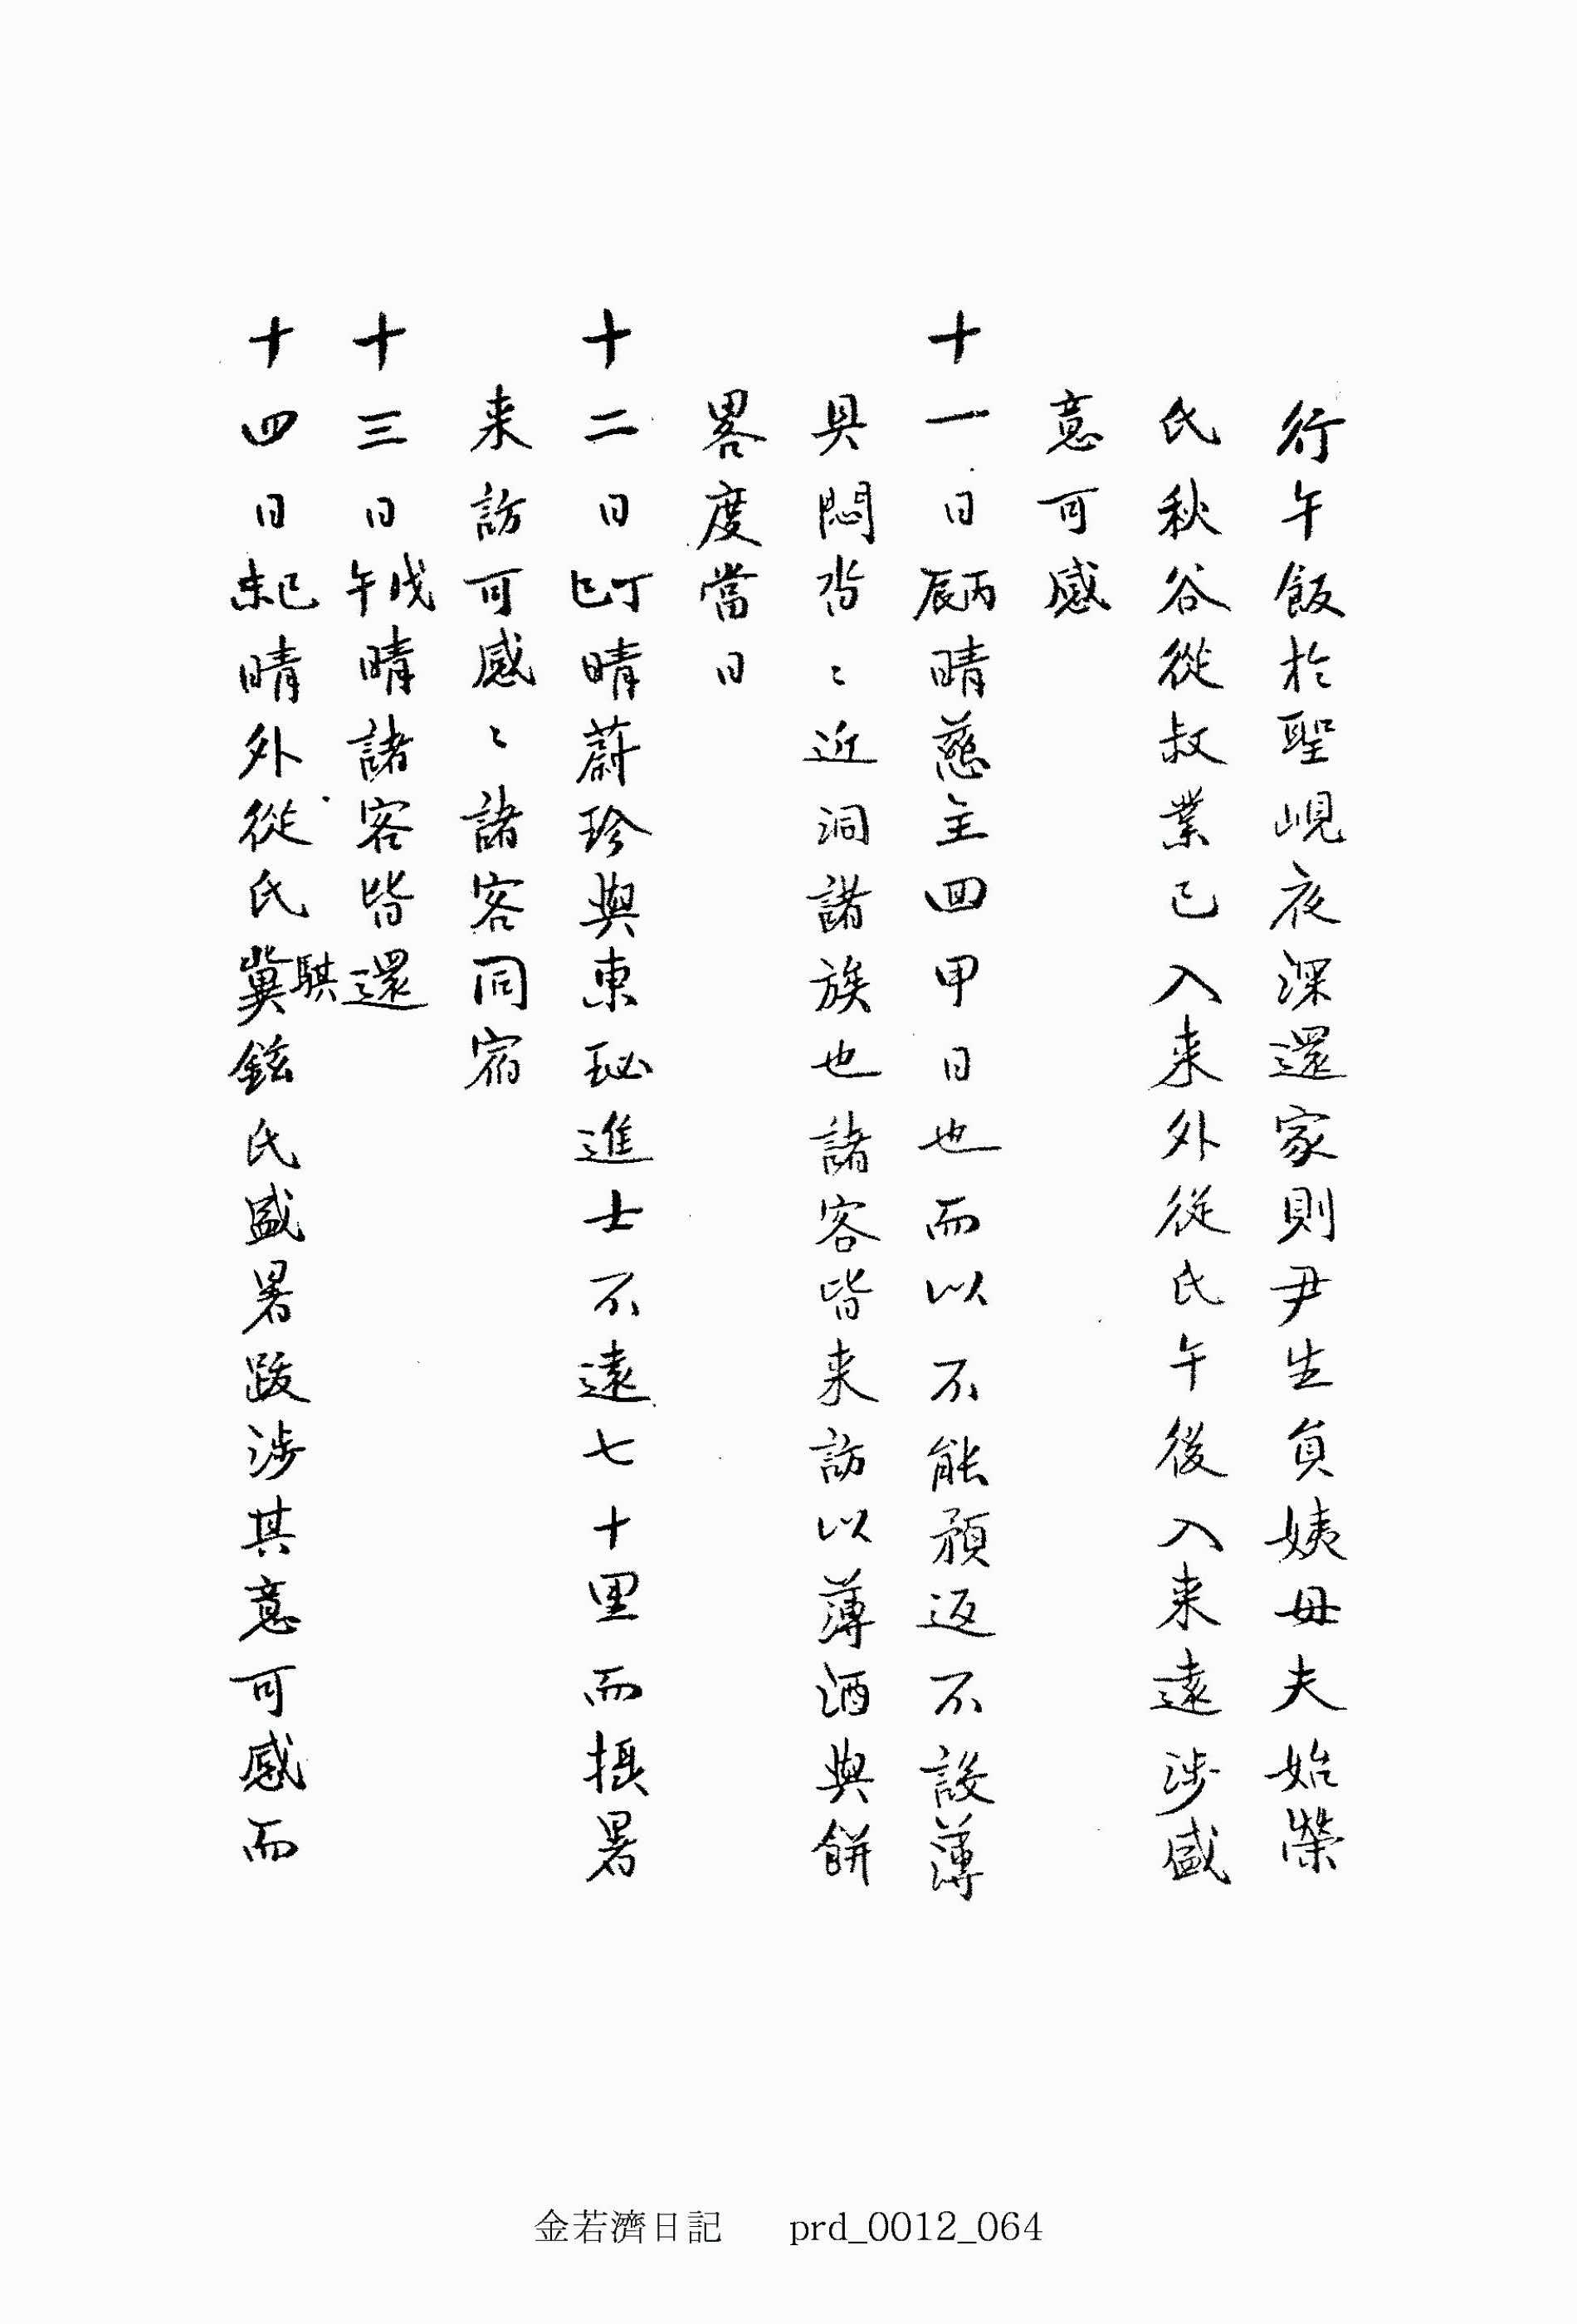 行午飯於聖峴夜深還家則尹生員姨母夫始榮
氏秋谷從叔業已入来外從氏午後入来遠涉盛
意可感
十一日丙辰晴慈主回甲日也而以不能預返不設薄
具悶沓〻近洞諸族也諸客皆来訪以薄酒與餠
畧度當日
十二日丁巳晴蔚珍與東珌進士不遠七十里而摄暑
来訪可感〻諸客同宿
十三日戊午晴諸客皆還
十四日己未晴外從氏騏冀鉉氏盛暑跋涉其意可感而
金若濟日記 prd_0012_064